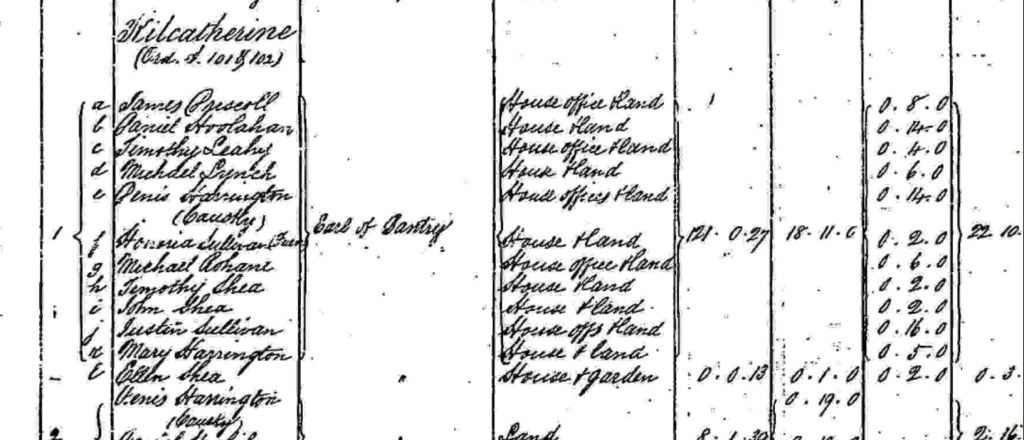 Kilcatherine
(Ord. S. 101 & 102)
a James Driscoll House office & land 0. 8. 0
b Daniel Hoolahan House & land 0. 14. 0
c Timothy Leahy House office & land 0. 4. 0
d Michael Lynch House & land 0. 6. 0
e Denis Harrington House offices & land 0. 14. 0
(Causky)
1 f Honora Sullivan Earl of Bantry House & land 121. 0. 27 18. 11. 0 0. 2. 0 22 10.
g Michael Rohane House office & land 0. 6. 0
h Timothy Shea House & land 0. 2. 0
i John Shea House & land 0. 2. 0
j Justin Sullivan House offs & land 0. 16. 0
k Mary Harrington House & land 0. 5. 0
– l Ellen Shea " House & garden 0. 0. 13 0. 1. 0 0. 2. 0 0. 3.
Denis Harrington 0. 19. 0
(Causky)
2 " Land 8. 1. 2. 16